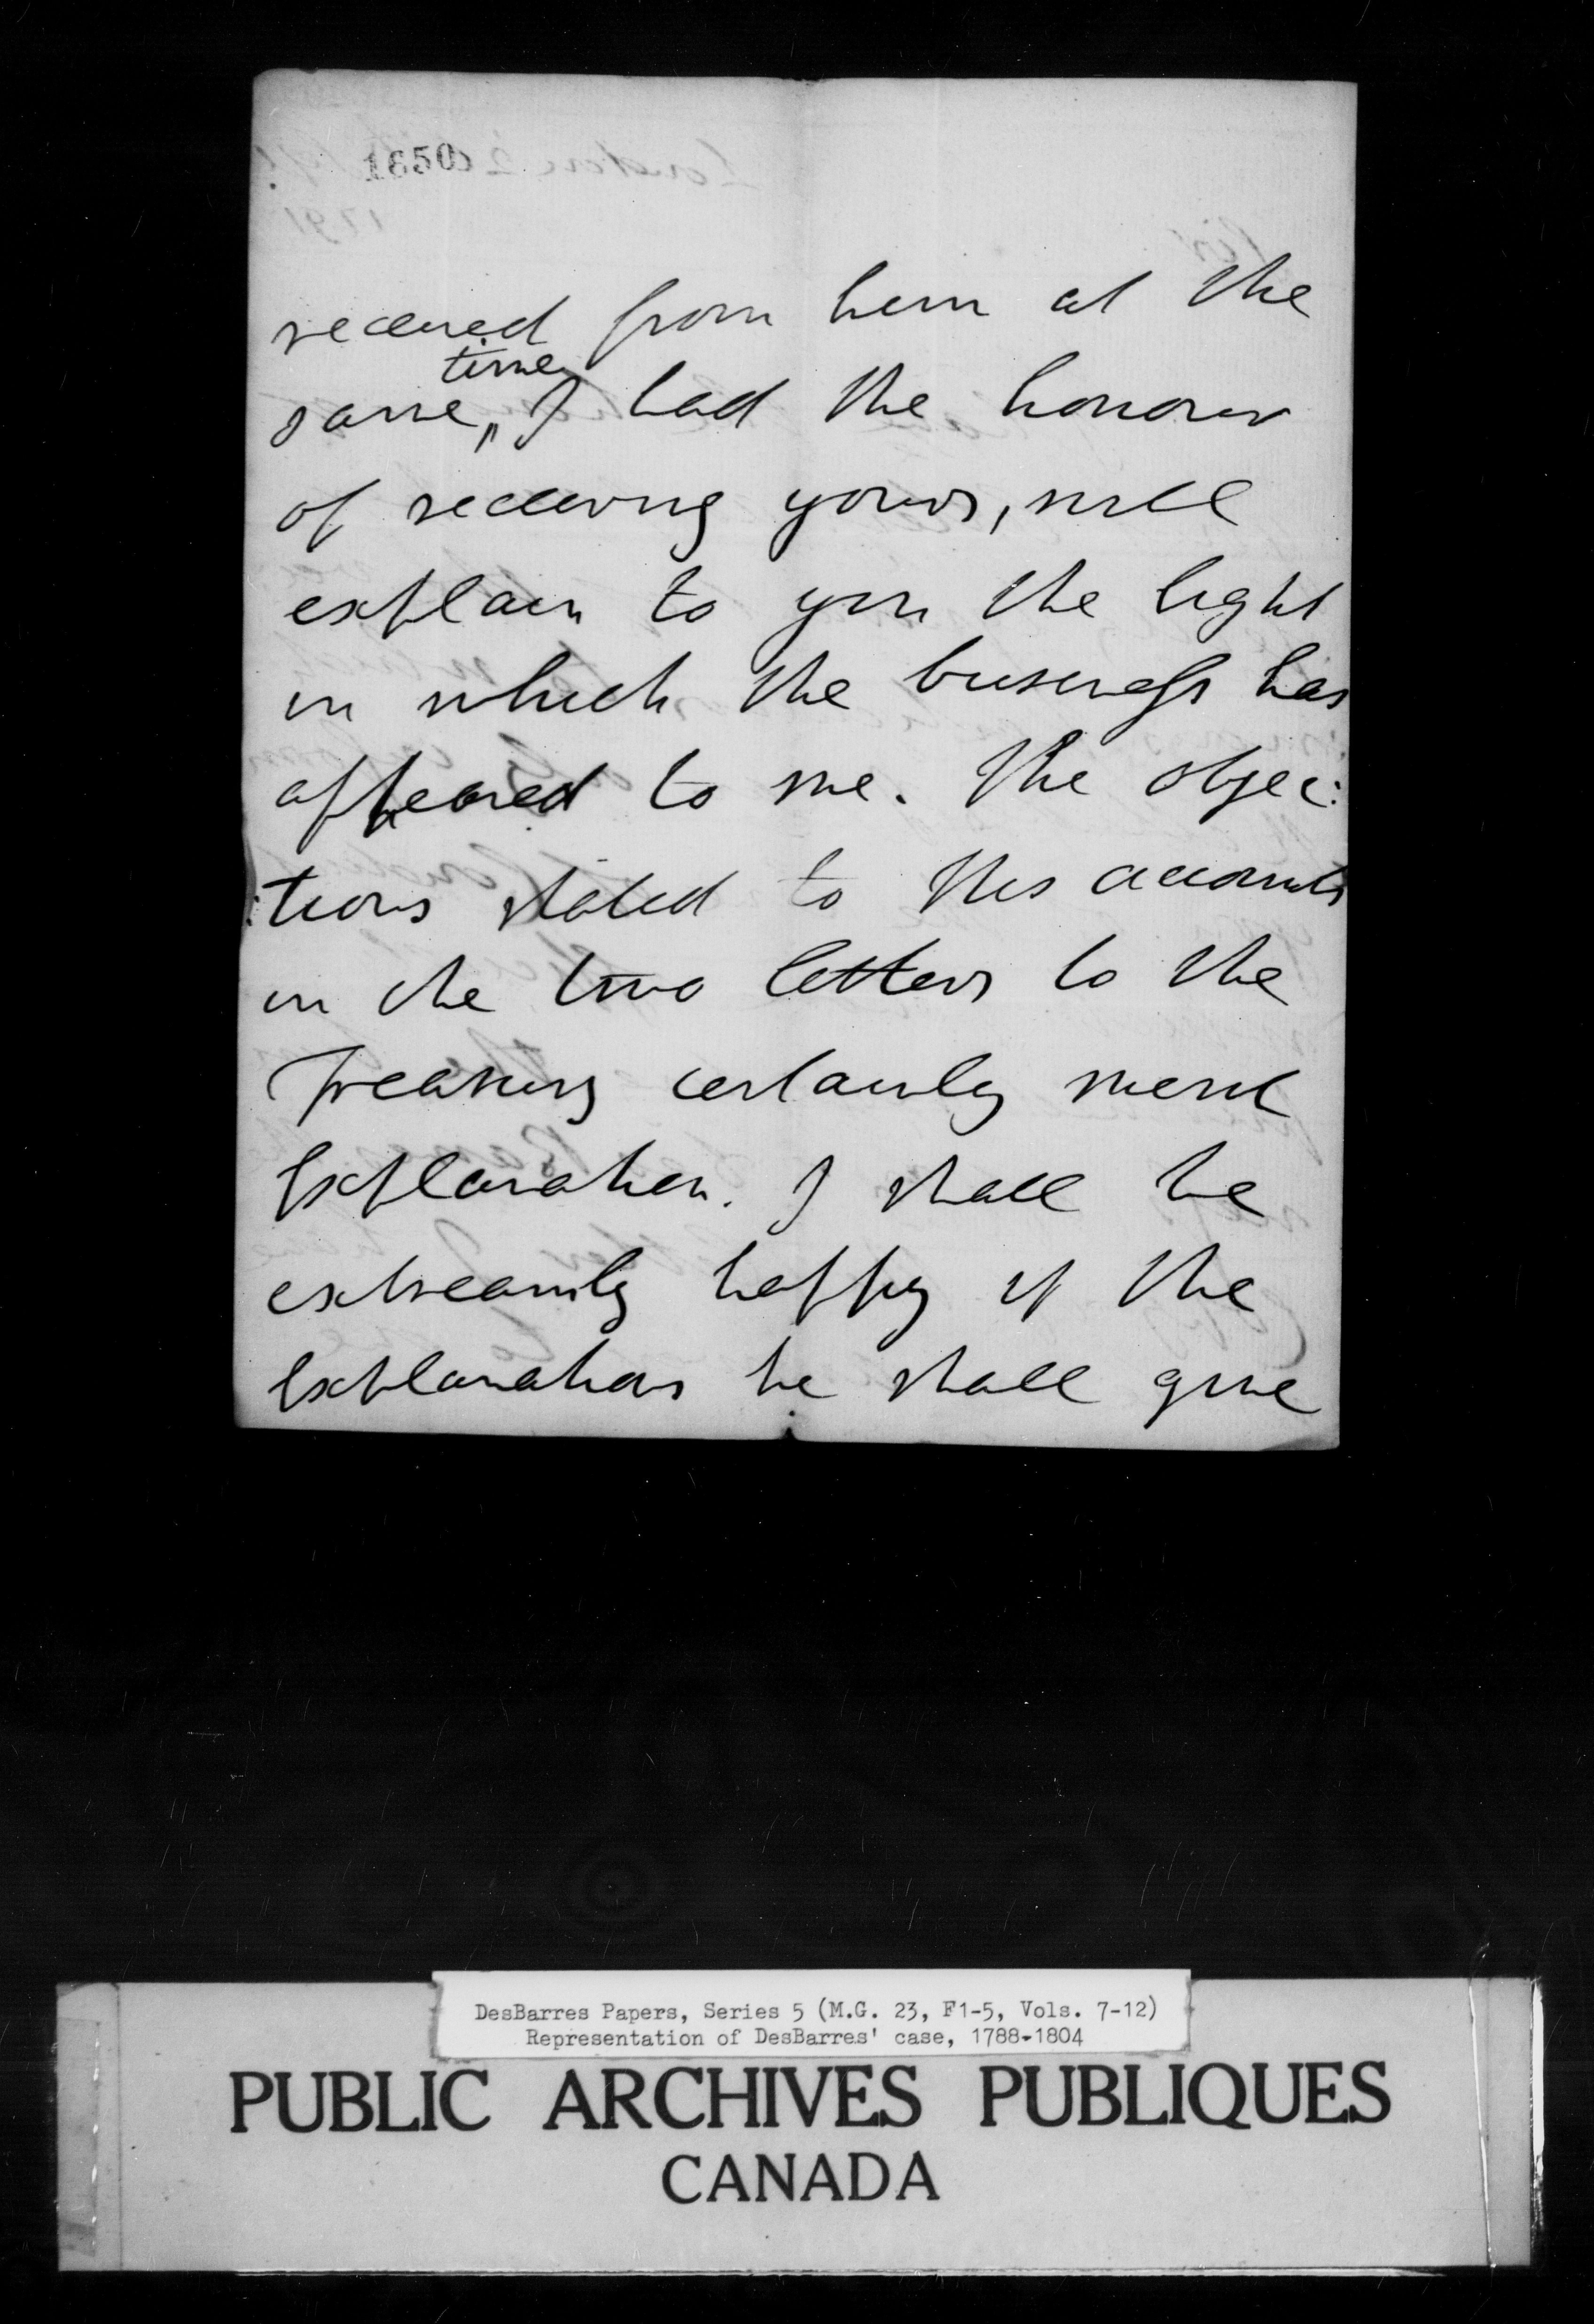 1850
received from him at the
time
same I had the honour
of receiving yours, will
explain to you the light
in which the business has
appeared to me. The objec:
:tions stated to this accounts
in the two letters to the
Treasury certainly merit
Explanation. I shall be
extreamly happy if the
Explanations he shall give
DesBarres Papers, Series 5 (M.G. 23, F1-5, Vols. 7-12)
Representation of DesBarres' case, 1788-1804
PUBLIC ARCHIVES PUBLIQUES
CANADA